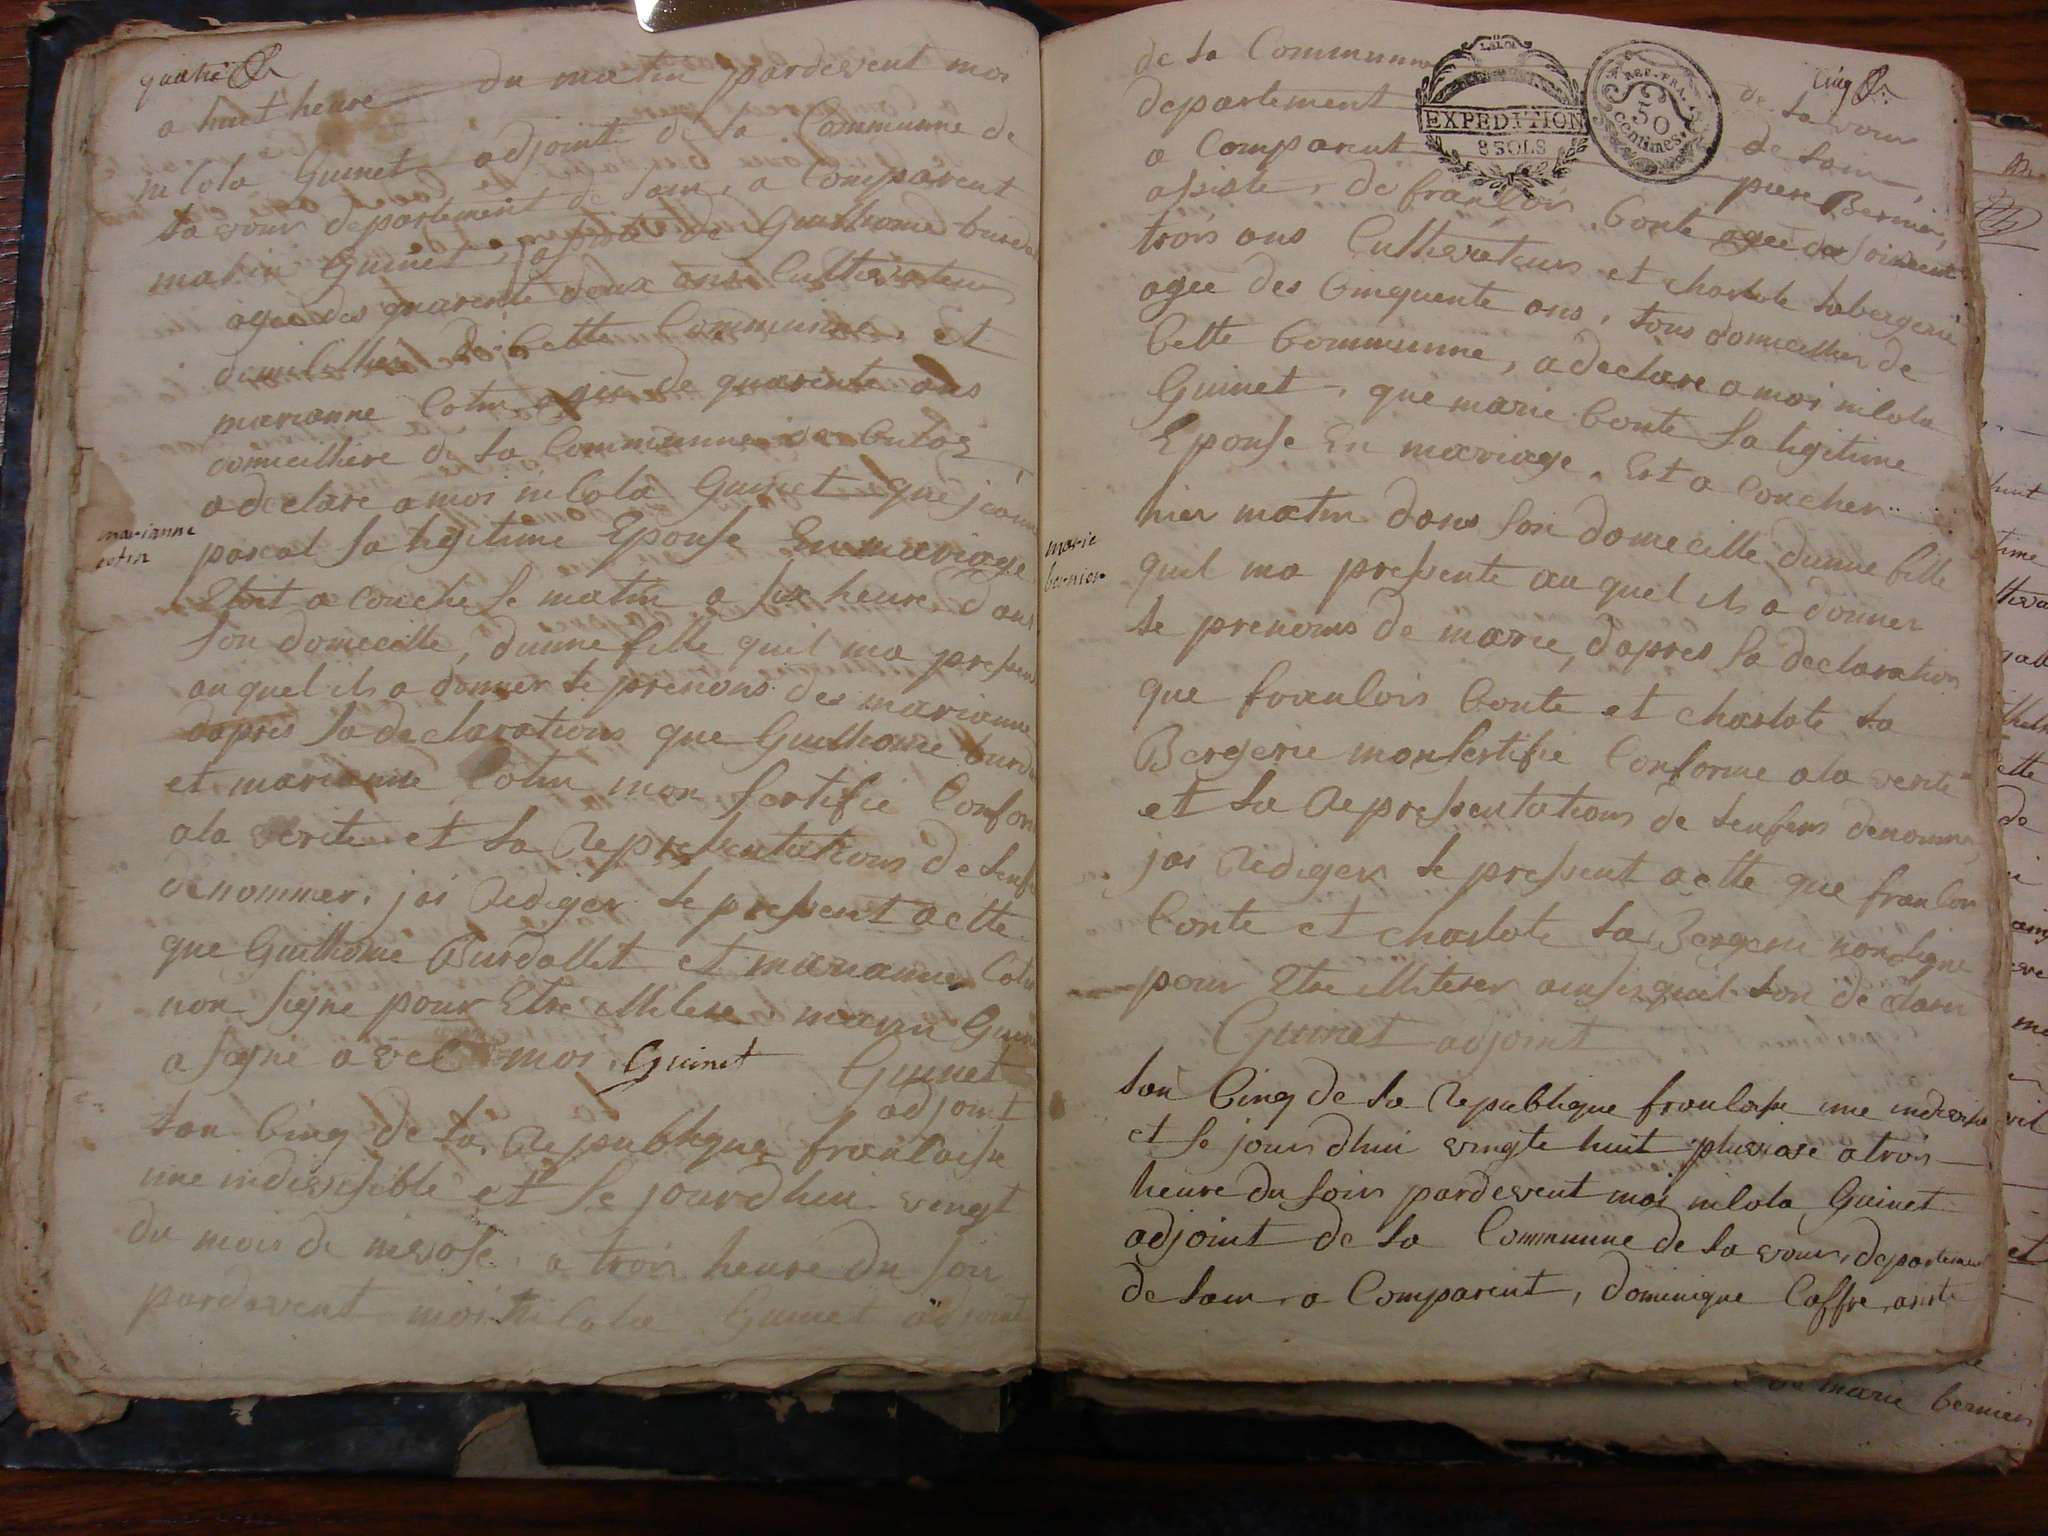 quatre
a huit heure du matin pardevent moi
nicola Guinet adjoint de la Commune de
la vour departement de lain, a Comparent
matin Guinet, asiste de Guilhome burda
agee des quarente deux ans Cultivateur
domicillier de Cette Commune, et
marianne Cotin agee de quarente ans
domicilliere de la Commune de Culoz
a declare a moi nicola Guinet que jeanne
pascal sa legitime Epouse En mariage
Etoit a couche se matin a six heure dans
son domecille, dunne fille quil ma presen
au quel ils a donner le prenoms des marianne
dapres sa declarations que Guilhome burda
et marianne Cotin mon sertifie Confor
a la verite et la representations de lenfa
denommer, jai rediger le present actte
que Guilhome Burdallet et marianne Cotin
non signe pour Etre illitere, marin Guin
a signe avec moi Guinet Guinet
adjoint
marianne
cotin
lan Cinq de la republique francaise
une indivisible et se jourdhui vingt
du mois de nivose, a trois heure du soir
pardevent moi nicola Guinet adjoint
Cinq
de la Commune de la vour
departement de lain,
LA LOI
EXPEDITION
8 SOLS
REP. FRA.
50
centimes
a Comparent piere Bernier,
asiste, de francois Conte agee de soixcent
trois ans Cultivateur et charlote labergerie
agee des Cinquente ans, tous domicillier de
Cette Commune, a declare a moi nicola
Guinet, que marie Conte sa legitime
Epouse En mariage, Est a coucher
hier matin dans son domecille dunne fille
quil ma presente au quel ils a donner
le prenoms de marie, dapres sa declaration
que francois Conte et charlote la
Bergerie mon sertifie Conforme a la verite
et la representations de lenfens denommer,
jai rediger le present actte que francois
Conte et charlote la Bergerie non signe
pour Etre illiterer ainsi quil lon declarer
Guinet adjoint
marie
bernier
lan Cinq de la republique francaise une indivisi
et se jourdhui vingte huit pluviose a trois
heure du soir pardevent moi nicola Guinet
adjoint de la Commune de la vour, departement
de lain, a Comparent, dominique Caffre asiste
de marie bernier